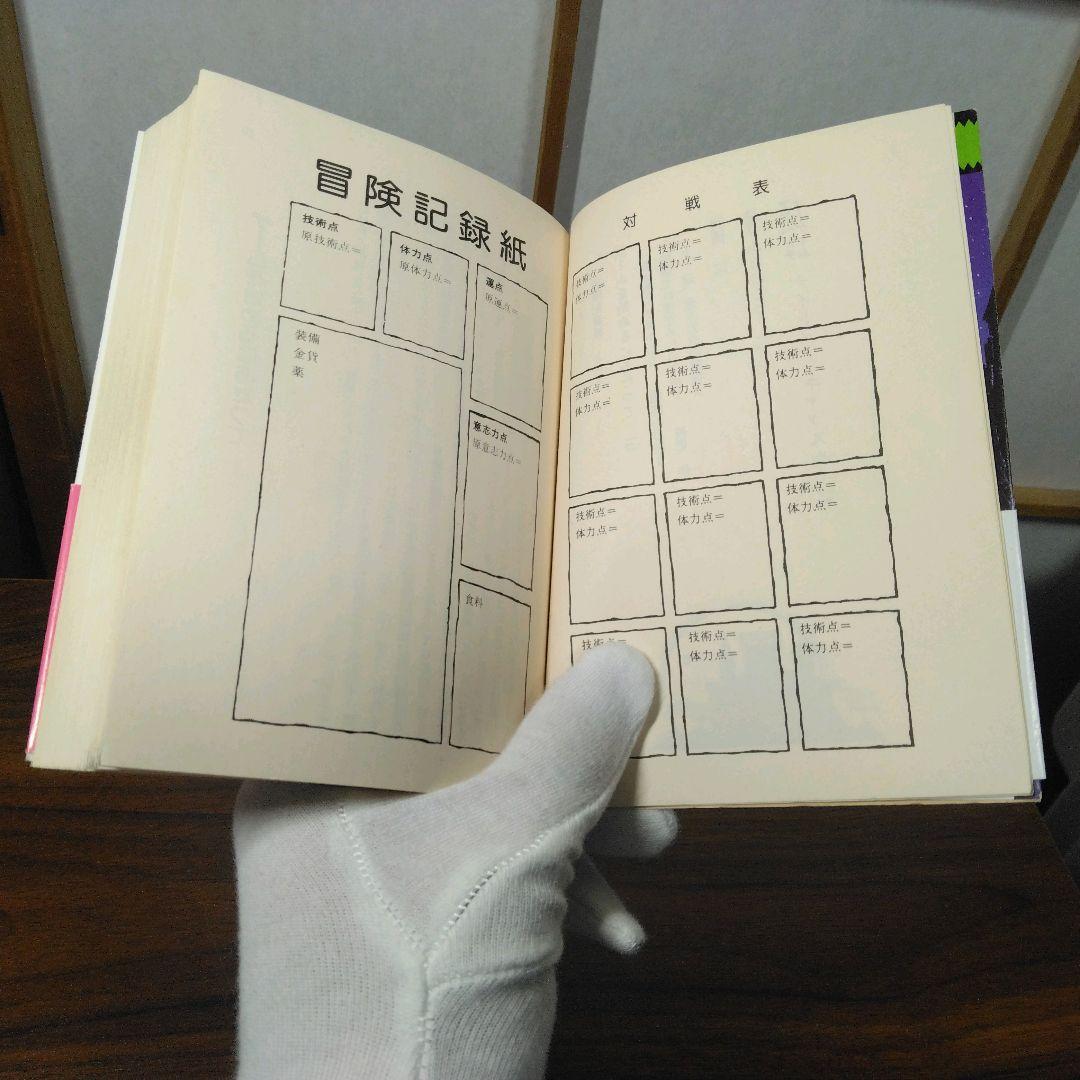 冒険記録紙
技術点
原技術点＝
体力点
原体力点＝
運点
原運点＝
装備
金貨
薬
意志力点
原意志力点＝
食料
対戦表
技術点＝
体力点＝
技術点＝
体力点＝
技術点＝
体力点＝
技術点＝
体力点＝
技術点＝
体力点＝
技術点＝
体力点＝
技術点＝
体力点＝
技術点＝
体力点＝
技術点＝
体力点＝
技術点＝
技術点＝
体力点＝
技術点＝
体力点＝